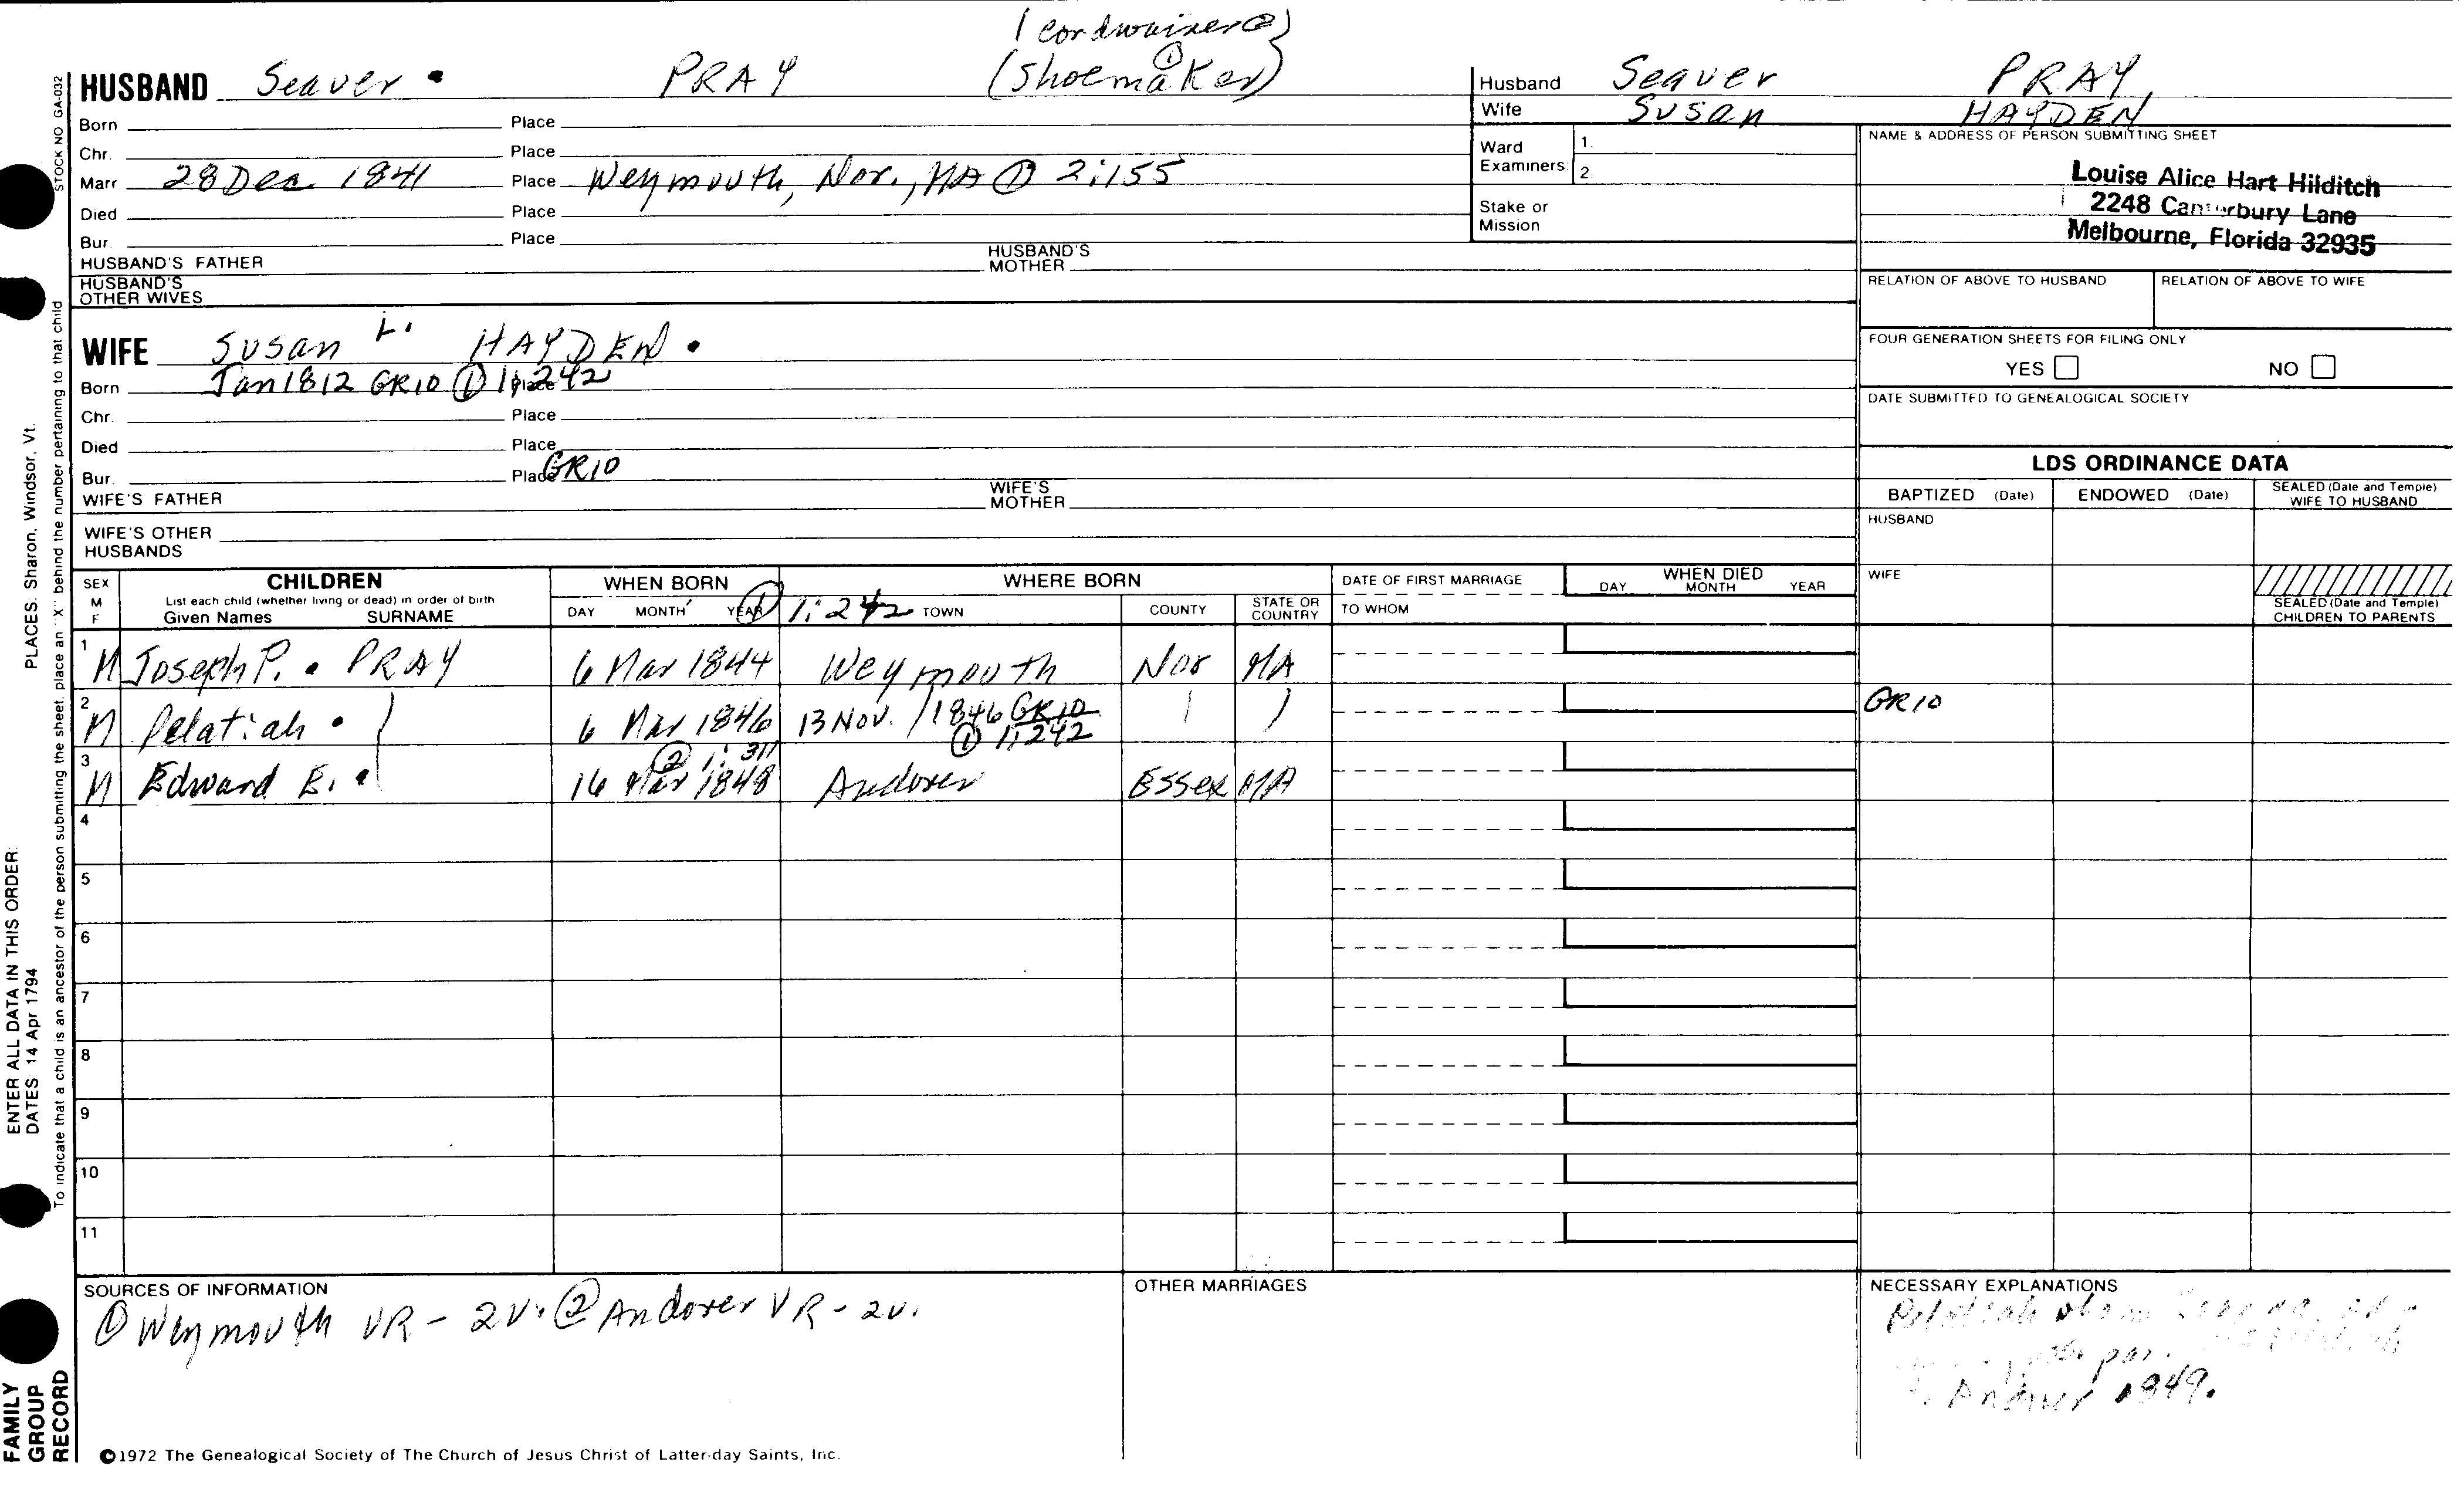 (Cordwainer ②)
HUSBAND Seaver • PRAY (Shoemaker) ①
Born Place
Chr. Place
Marr 28 Dec. 1841 Place Weymouth, Nor., MA ① 2:155
Died Place
Bur. Place
HUSBAND'S FATHER HUSBAND'S MOTHER
HUSBAND'S OTHER WIVES
WIFE Susan L. HAYDEN •
Born Jan 1812 GR10 ① 1:242 Place
Chr. Place
Died Place
Bur. Place GR10
WIFE'S FATHER WIFE'S MOTHER
WIFE'S OTHER HUSBANDS
Husband Seaver PRAY
Wife Susan HAYDEN
Ward Examiners: 1. 2
Stake or Mission
NAME & ADDRESS OF PERSON SUBMITTING SHEET
Louise Alice Hart Hilditch
2248 Canterbury Lane
Melbourne, Florida 32935
RELATION OF ABOVE TO HUSBAND RELATION OF ABOVE TO WIFE
FOUR GENERATION SHEETS FOR FILING ONLY
YES NO
DATE SUBMITTED TO GENEALOGICAL SOCIETY
LDS ORDINANCE DATA
BAPTIZED (Date) ENDOWED (Date) SEALED (Date and Temple) WIFE TO HUSBAND
HUSBAND
WIFE
SEALED (Date and Temple) CHILDREN TO PARENTS
SEX M F
CHILDREN
List each child (whether living or dead) in order of birth
Given Names SURNAME
WHEN BORN
DAY MONTH YEAR
WHERE BORN
① 1:242 TOWN COUNTY STATE OR COUNTRY
DATE OF FIRST MARRIAGE
TO WHOM
WHEN DIED
DAY MONTH YEAR
1 M Joseph P. • PRAY 6 Mar 1844 Weymouth Nor MA
2 M Pelatiah • 6 Mar 1846 13 Nov. / 1846 GR10 ① 1:242 GR10
3 M Edward E. • ② 1:311 16 Mar 1848 Andover Essex MA
4
5
6
7
8
9
10
11
SOURCES OF INFORMATION
① Weymouth VR - 2V. ② Andover VR - 2v.
OTHER MARRIAGES
NECESSARY EXPLANATIONS
Pelatiah
Andover 1849.
©1972 The Genealogical Society of The Church of Jesus Christ of Latter-day Saints, Inc.
STOCK NO GA-032
To indicate that a child is an ancestor of the person submitting the sheet, place an "X" behind the number pertaining to that child
ENTER ALL DATA IN THIS ORDER:
DATES: 14 Apr 1794 PLACES: Sharon, Windsor, Vt.
FAMILY GROUP RECORD